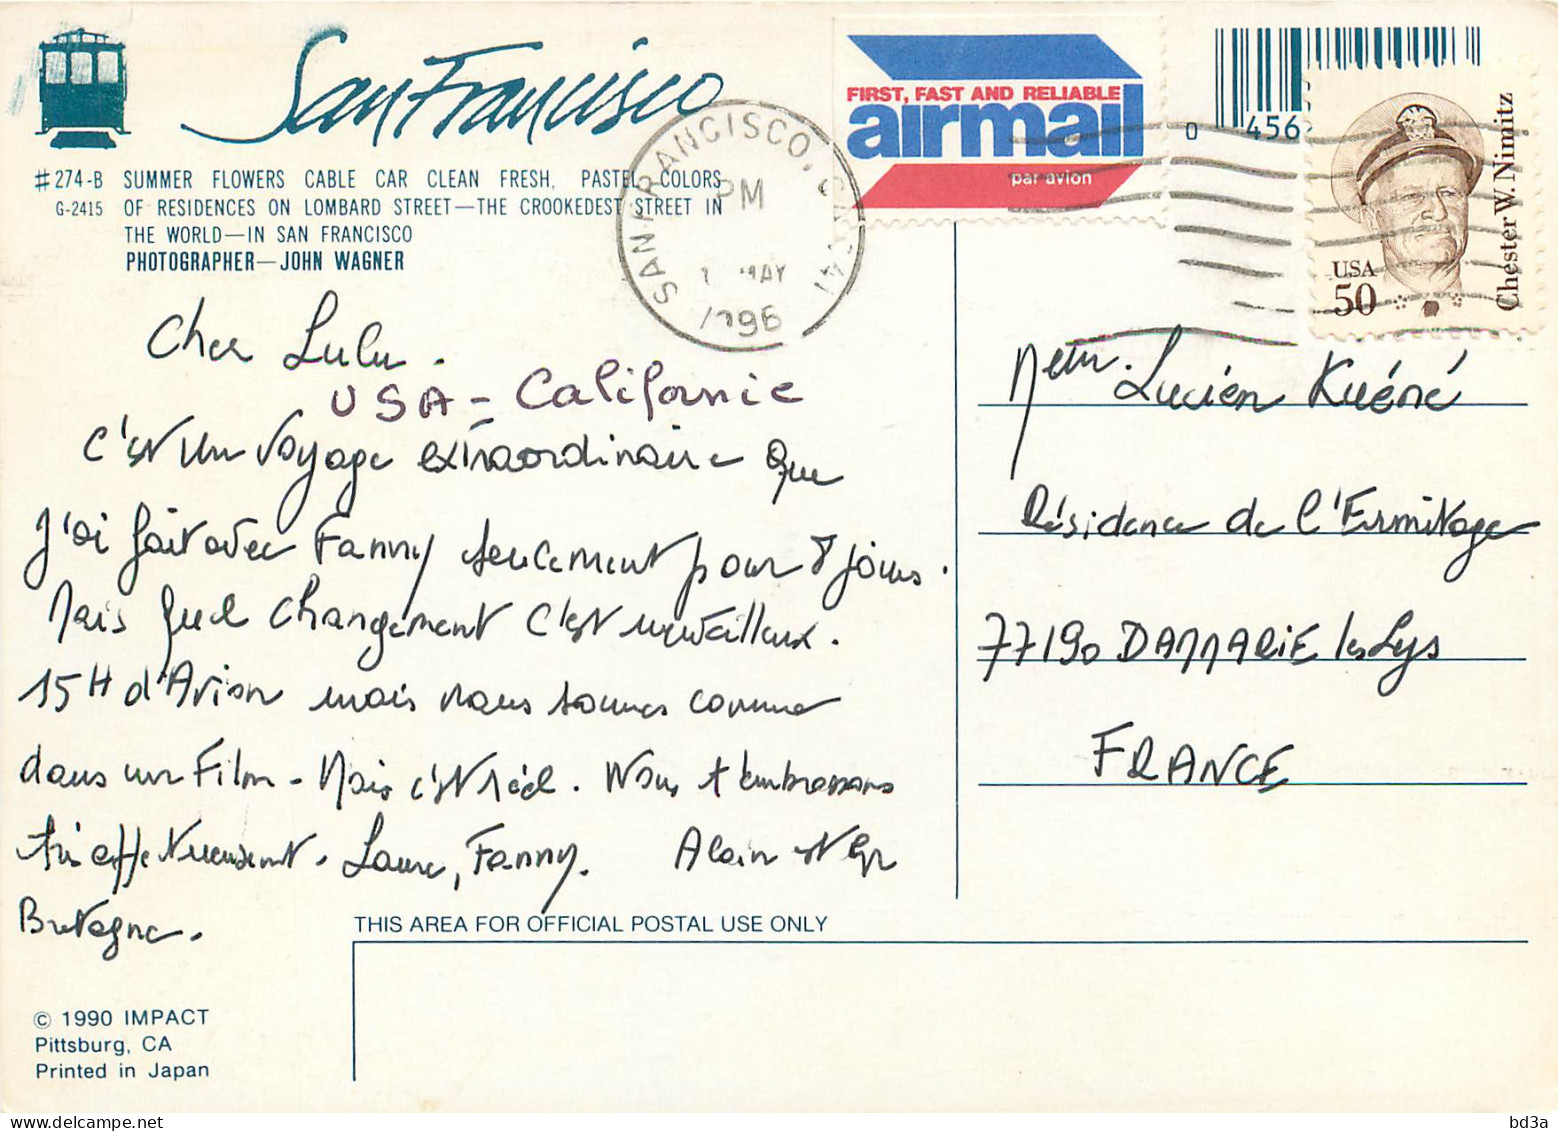 San Francisco
#274-B SUMMER FLOWERS CABLE CAR CLEAN FRESH, PASTEL COLORS
G-2415 OF RESIDENCES ON LOMBARD STREET—THE CROOKEDEST STREET IN
THE WORLD—IN SAN FRANCISCO
PHOTOGRAPHER—JOHN WAGNER
FIRST, FAST AND RELIABLE
airmail
par avion
0 456
SAN FRANCISCO, CA 941
PM
1 MAY
1996
USA
50
Chester W. Nimitz
Cher Lulu.
USA - Californie
C'est un voyage extraordinaire que
j'ai fait avec Fanny seulement pour 8 jours.
Mais quel changement c'est merveilleux.
15H d'Avion mais nous sommes comme
dans un Film - Mais c'est réel. Nous t'embrassons
très affectueusement. Laure, Fanny. Alain et
Bretagne.
Lucien Kuéné
Résidence de l'Ermitage
77190 DAMMARIE les Lys
FRANCE
THIS AREA FOR OFFICIAL POSTAL USE ONLY
© 1990 IMPACT
Pittsburg, CA
Printed in Japan
bd3a